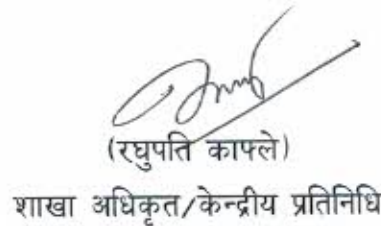 (रघुपति काफ्ले)
शाखा अधिकृत/केन्द्रीय प्रतिनिधि